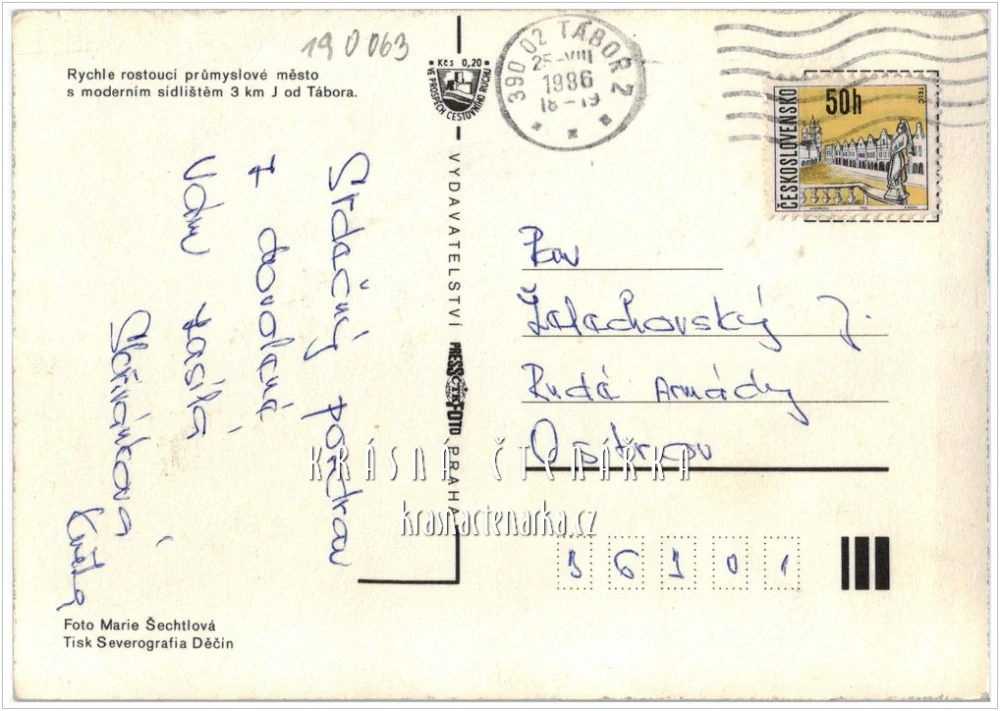 19 0 063
Rychle rostoucí průmyslové město
s moderním sídlištěm 3 km J od Tábora.
Kčs 0,20
VE PROSPĚCH CESTOVNÍHO RUCHU
390 02 TÁBOR 2
25-VIII
1986
18-19
ČESKOSLOVENSKO
50h
TELČ
Srdečný pozdrav
z dovolené
Vám zasílá
Skřivánková
Květa
VYDAVATELSTVÍ PRESSFOTO PRAHA
ČTK
Pan
Žalachovský J.
Rudá Armády
Ostrov
36301
KRÁSNÁ ČTENÁŘKA
krasnactenarka.cz
Foto Marie Šechtlová
Tisk Severografia Děčín